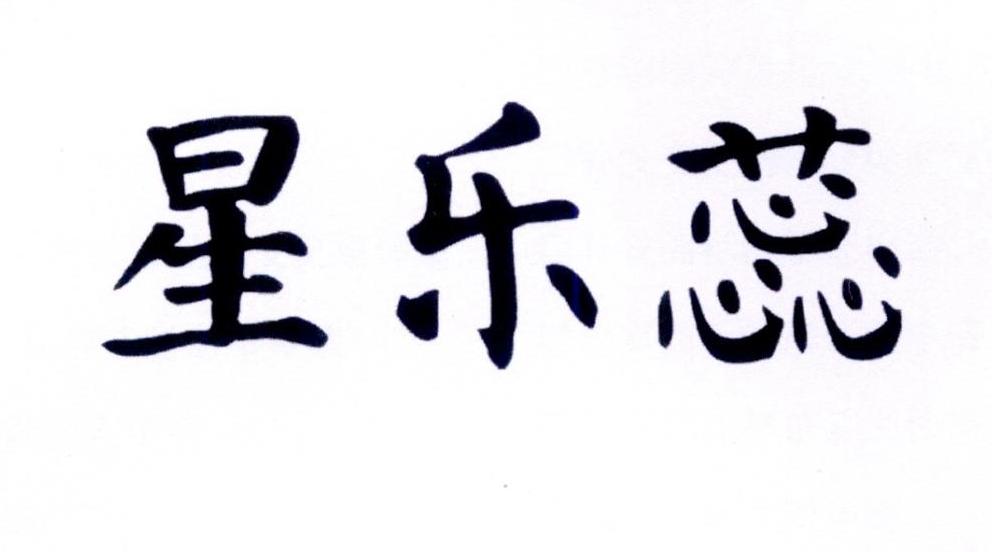 星乐蕊